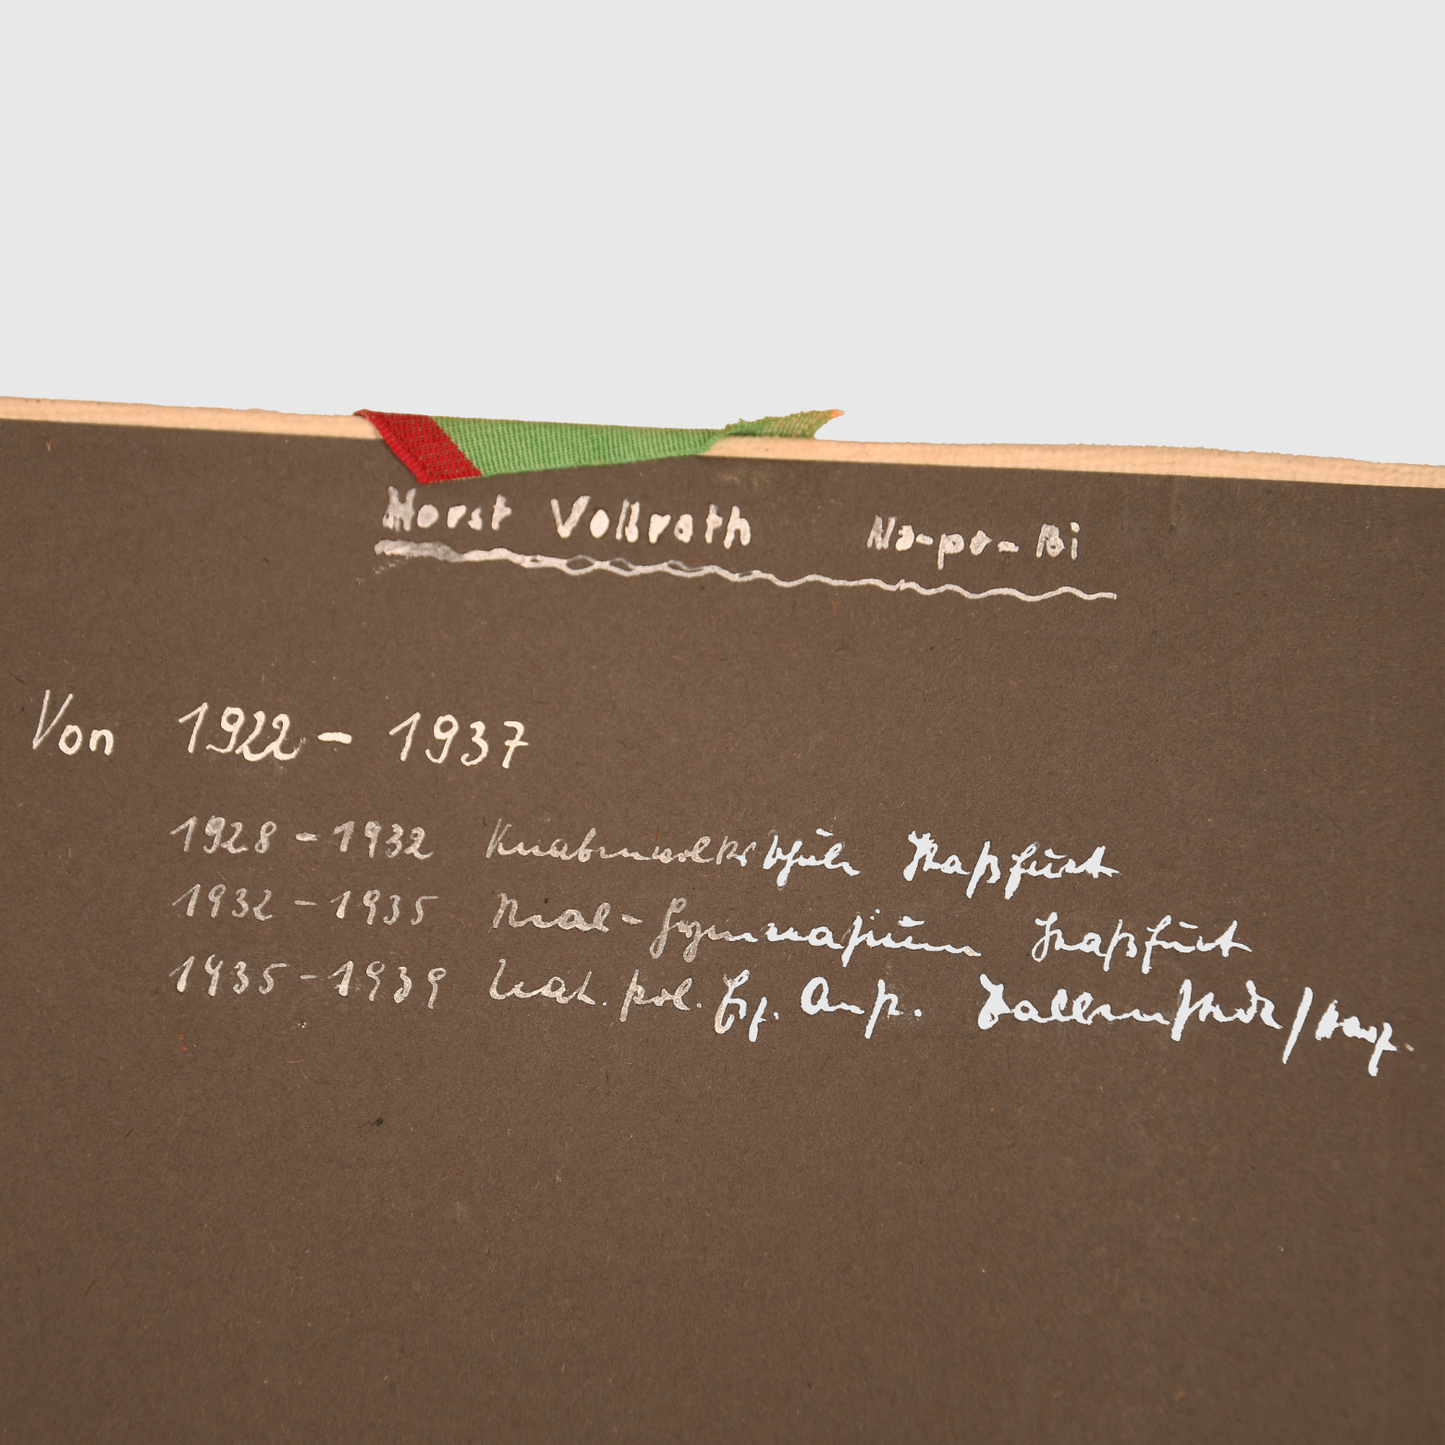 Horst Vollrath Na-po-Bi
Von 1922 - 1937
1928 - 1932 Knabenvolksschule Staßfurt
1932 - 1935 Real-Gymnasium Staßfurt
1935 - 1939 Nat. pol. Erz. Anst. Ballenstedt/Harz.